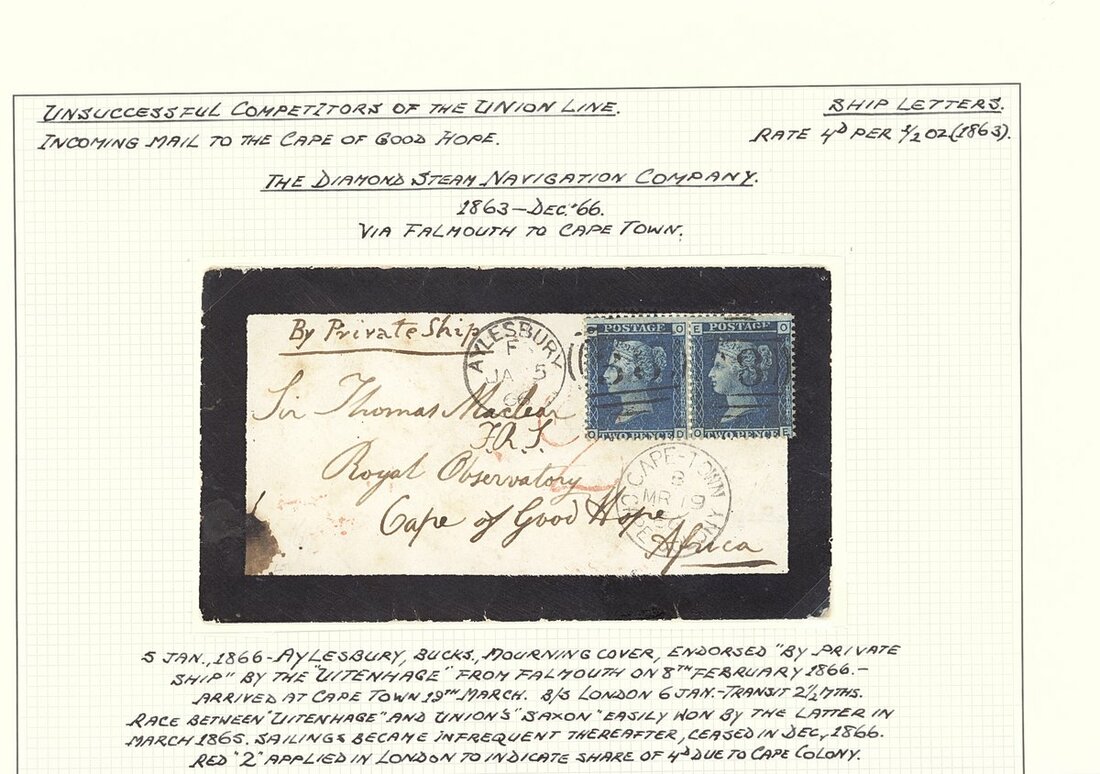 UNSUCCESSFUL COMPETITORS OF THE UNION LINE.
SHIP LETTERS.
INCOMING MAIL TO THE CAPE OF GOOD HOPE.
RATE 4D PER 1/2 OZ (1863).
THE DIAMOND STEAM NAVIGATION COMPANY.
1863-DEC.'66.
VIA FALMOUTH TO CAPE TOWN.
By Private Ship
AYLESBURY
F
JA 5
66
POSTAGE O
E POSTAGE O
O TWO PENCE D
O TWO PENCE E
Sir Thomas Maclear
F.R.S.
Royal Observatory
Cape of Good Hope
Africa
2
CAPE-TOWN
MR 19
5 JAN., 1866-AYLESBURY, BUCKS., MOURNING COVER, ENDORSED "BY PRIVATE
SHIP" BY THE "UITENHAGE" FROM FALMOUTH ON 8TH FEBRUARY 1866.-
ARRIVED AT CAPE TOWN 19TH MARCH. B/S LONDON 6 JAN.-TRANSIT 2 1/2 MTHS.
RACE BETWEEN "UITENHAGE" AND UNION'S "SAXON" EASILY WON BY THE LATTER IN
MARCH 1865. SAILINGS BECAME INFREQUENT THEREAFTER, CEASED IN DEC, 1866.
RED "2" APPLIED IN LONDON TO INDICATE SHARE OF 4D DUE TO CAPE COLONY.